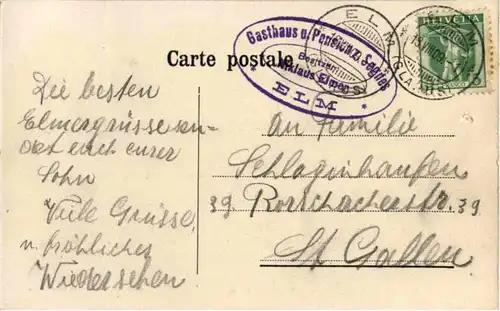 Carte postale
Gasthaus u. Pension z. Segnes
Besitzer
Niklaus Elmer
ELM
ELM
(GLARUS)
HELVETIA
Die besten
Elmergrüsse sen-
det euch eurer
Sohn
Viele Grüsse,
u. fröhliches
Wiedersehen
An Familie
Schlaginhaufen
39 Rorschacherstr. 39
St Gallen